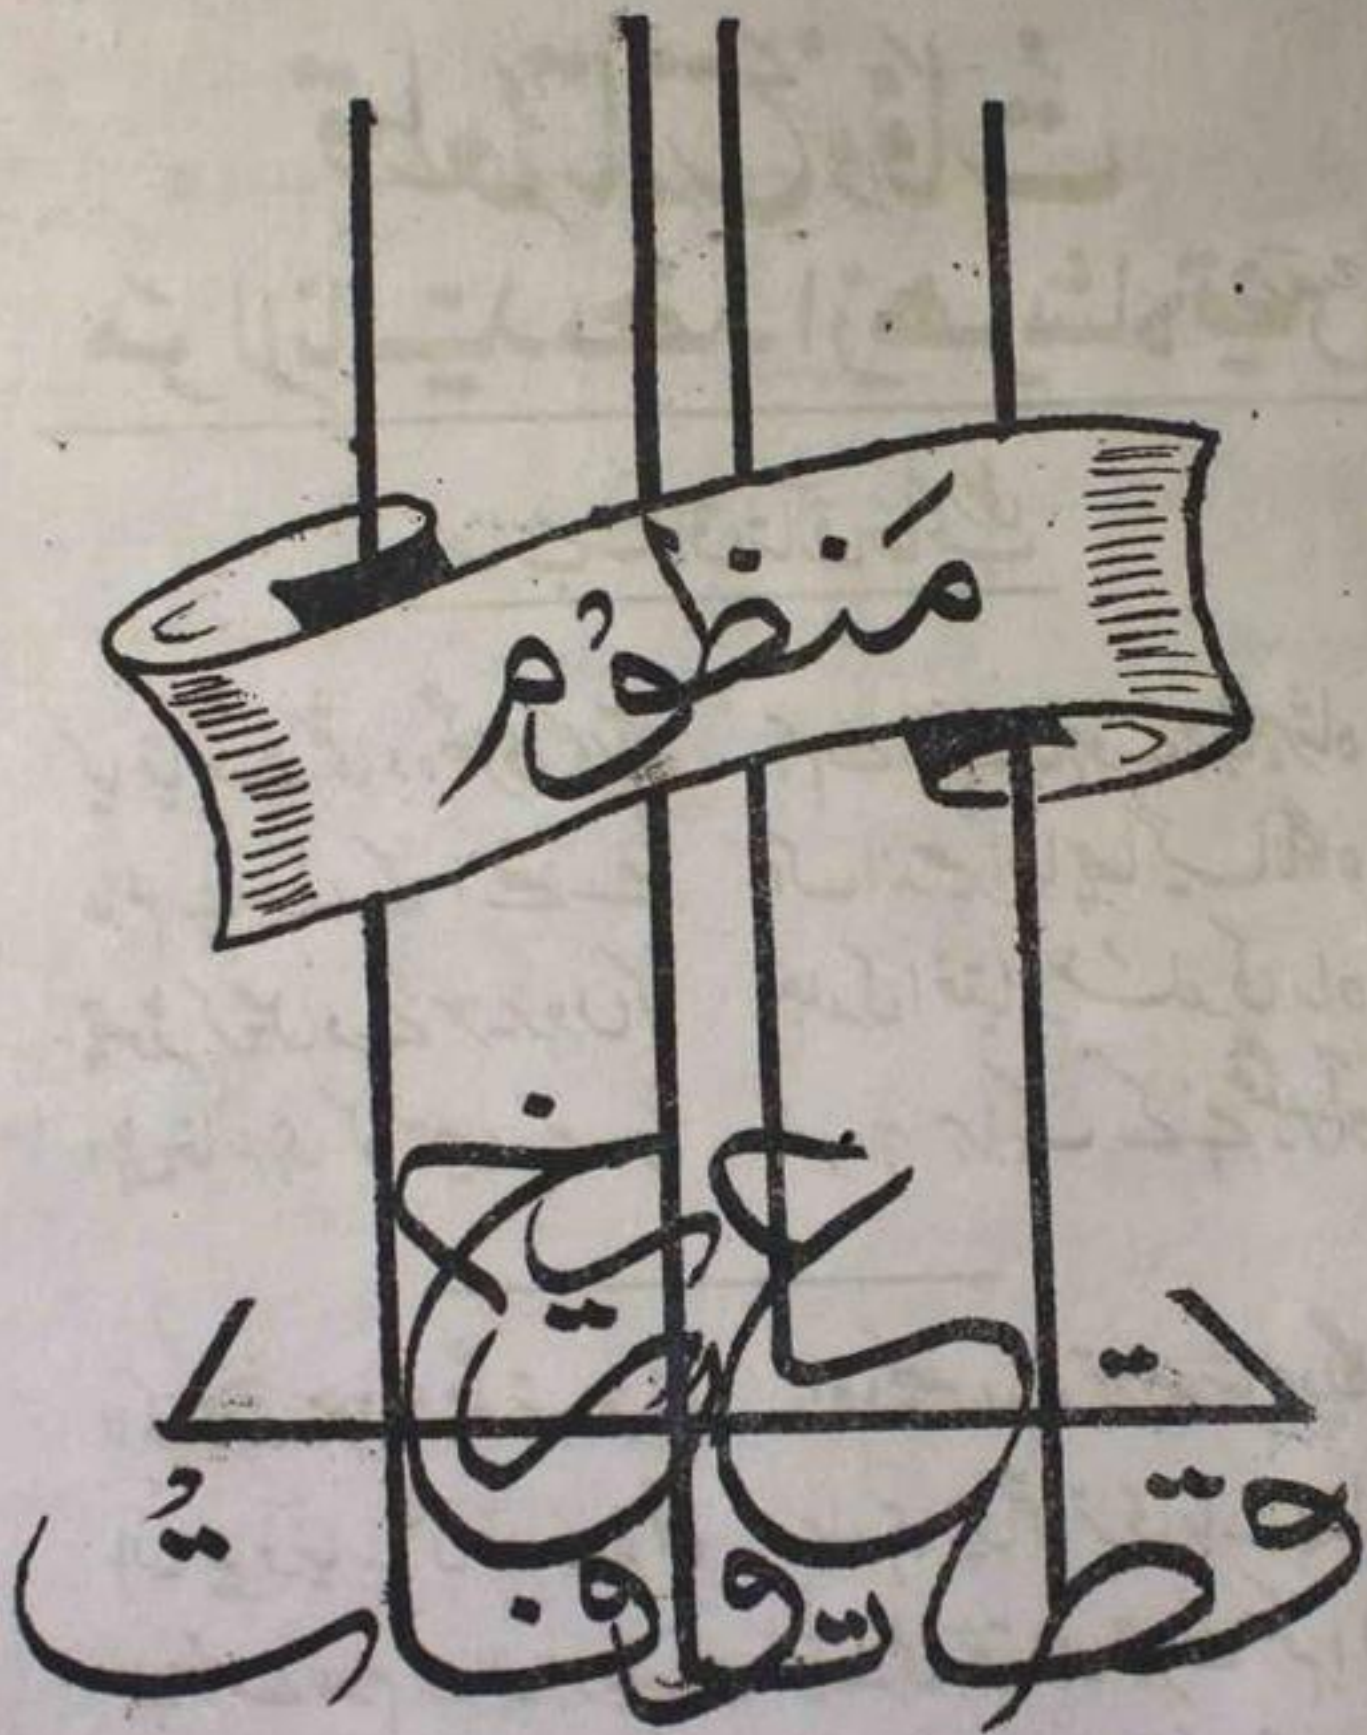 مَنظوُم
قطعات تواریخ وفات